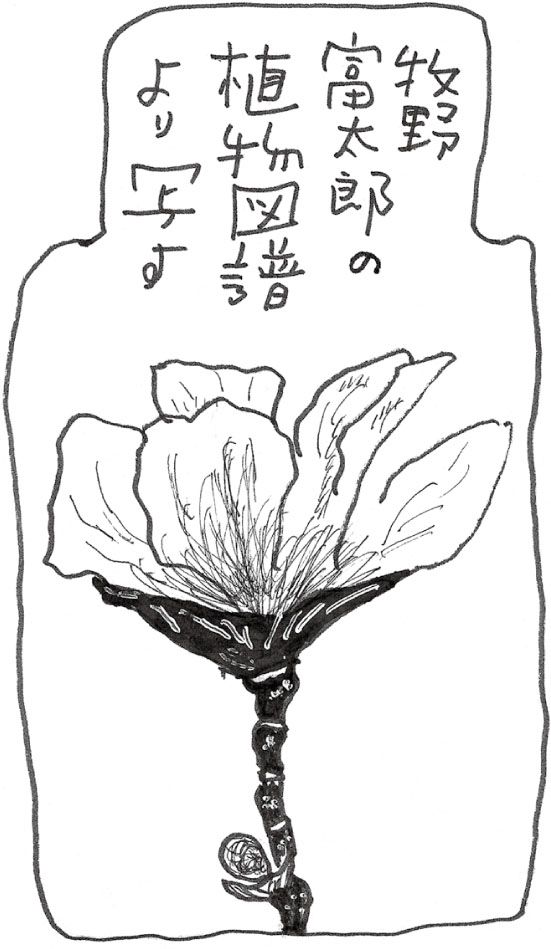 牧野
富太郎の
植物図譜
より写す